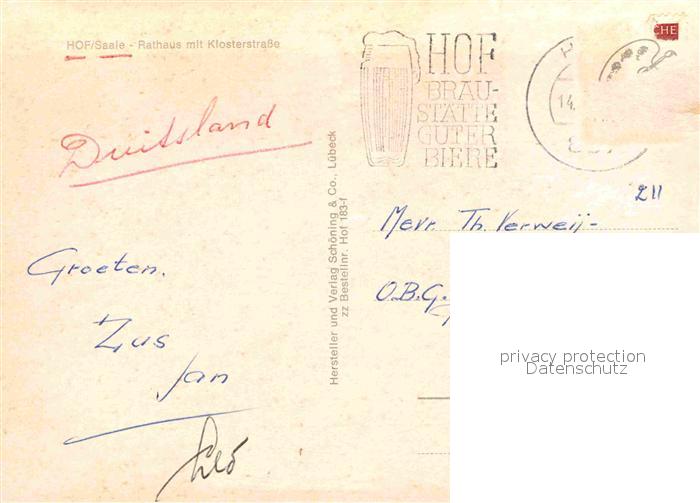 HOF/Saale - Rathaus mit Klosterstraße
HOF
BRAU-
STÄTTE
GUTER
BIERE
14.
CHE
Duitsland
211
Mevr. Th. Verweij-
O.B.G.
Groeten.
Zus
Jan
Hersteller und Verlag Schöning & Co., Lübeck
zz Bestellnr. Hof 183-f
privacy protection
Datenschutz